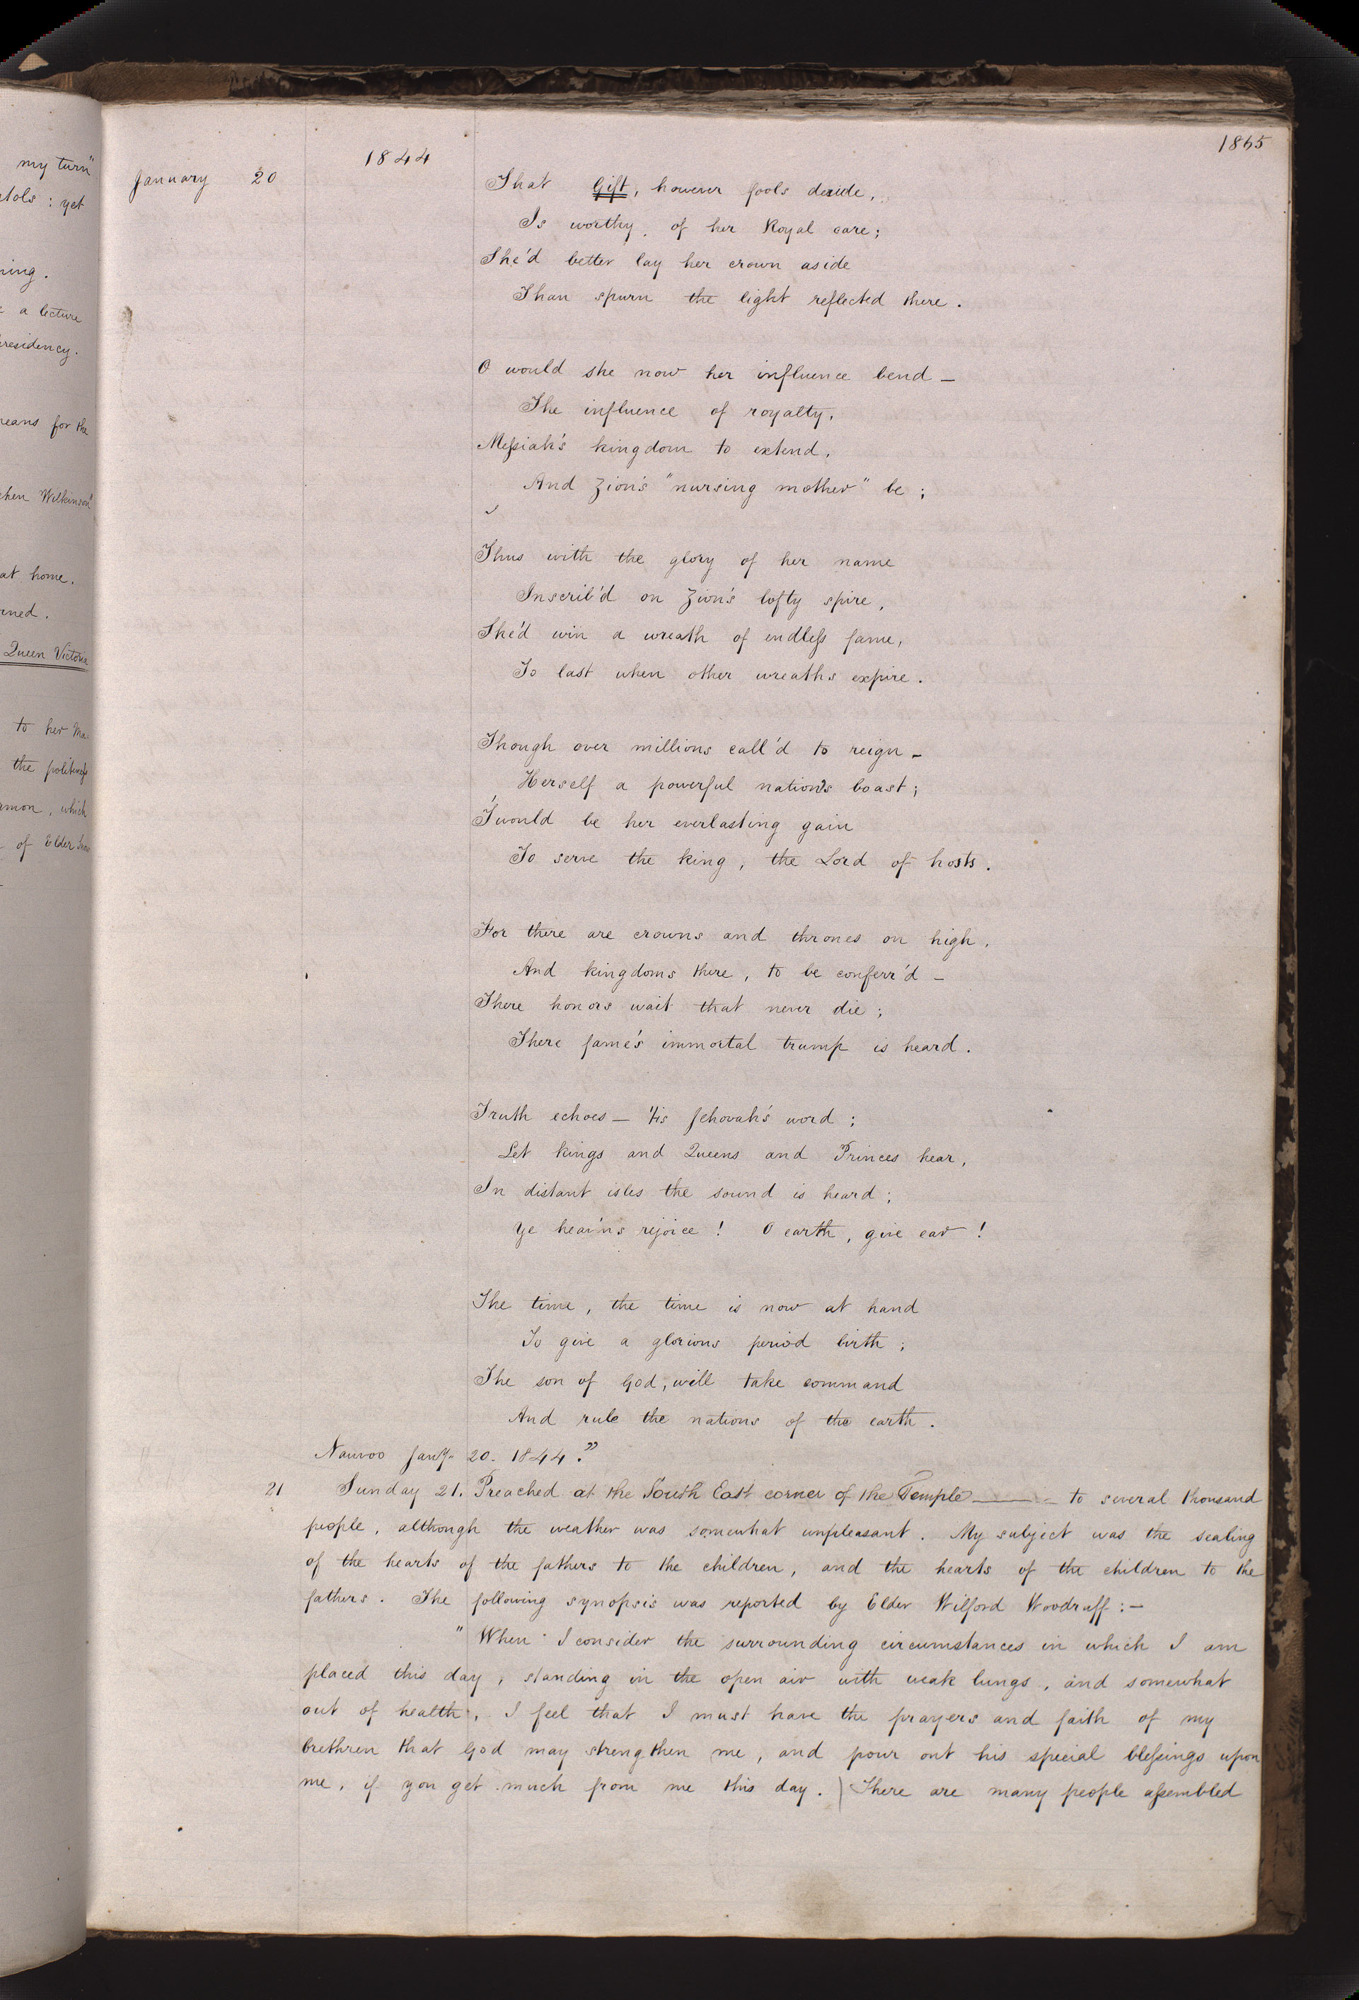 my turn"
stols : yet
ning.
e a lecture
residency.
means for the
chen Wilkinson"
at home.
rned.
Queen Victoria
to her Ma
the politeness
amon, which
of Elder Snow
1865
1844
January 20
That Gift, however fools deride,
Is worthy, of her Royal care;
She'd better lay her crown aside
Than spurn the light reflected there.
O would she now her influence bend —
The influence of royalty,
Messiah's kingdom to extend,
And Zion's "nursing mother" be;
Thus with the glory of her name
Inscrib'd on Zion's lofty spire,
She'd win a wreath of endless fame,
To last when other wreaths expire.
Though over millions call'd to reign —
Herself a powerful nation's boast;
'Twould be her everlasting gain
To serve the king, the Lord of hosts.
For there are crowns and thrones on high,
And kingdoms there, to be conferr'd —
There honors wait that never die;
There fame's immortal trump is heard.
Truth echoes — 'tis Jehovah's word;
Let kings and Queens and Princes hear,
In distant isles the sound is heard;
Ye heav'ns rejoice! O earth, give ear!
The time, the time is now at hand
To give a glorious period birth;
The son of God, will take command
And rule the nations of the earth.
Nauvoo Jan'y. 20. 1844."
21 Sunday 21. Preached at the South East corner of the Temple ——— to several thousand
people, although the weather was somewhat unpleasant. My subject was the sealing
of the hearts of the fathers to the children, and the hearts of the children to the
fathers. The following synopsis was reported by Elder Wilford Woodruff:—
"When I consider the surrounding circumstances in which I am
placed this day, standing in the open air with weak lungs, and somewhat
out of health, I feel that I must have the prayers and faith of my
brethren that God may strengthen me, and pour out his special blessings upon
me, if you get much from me this day. ) There are many people assembled